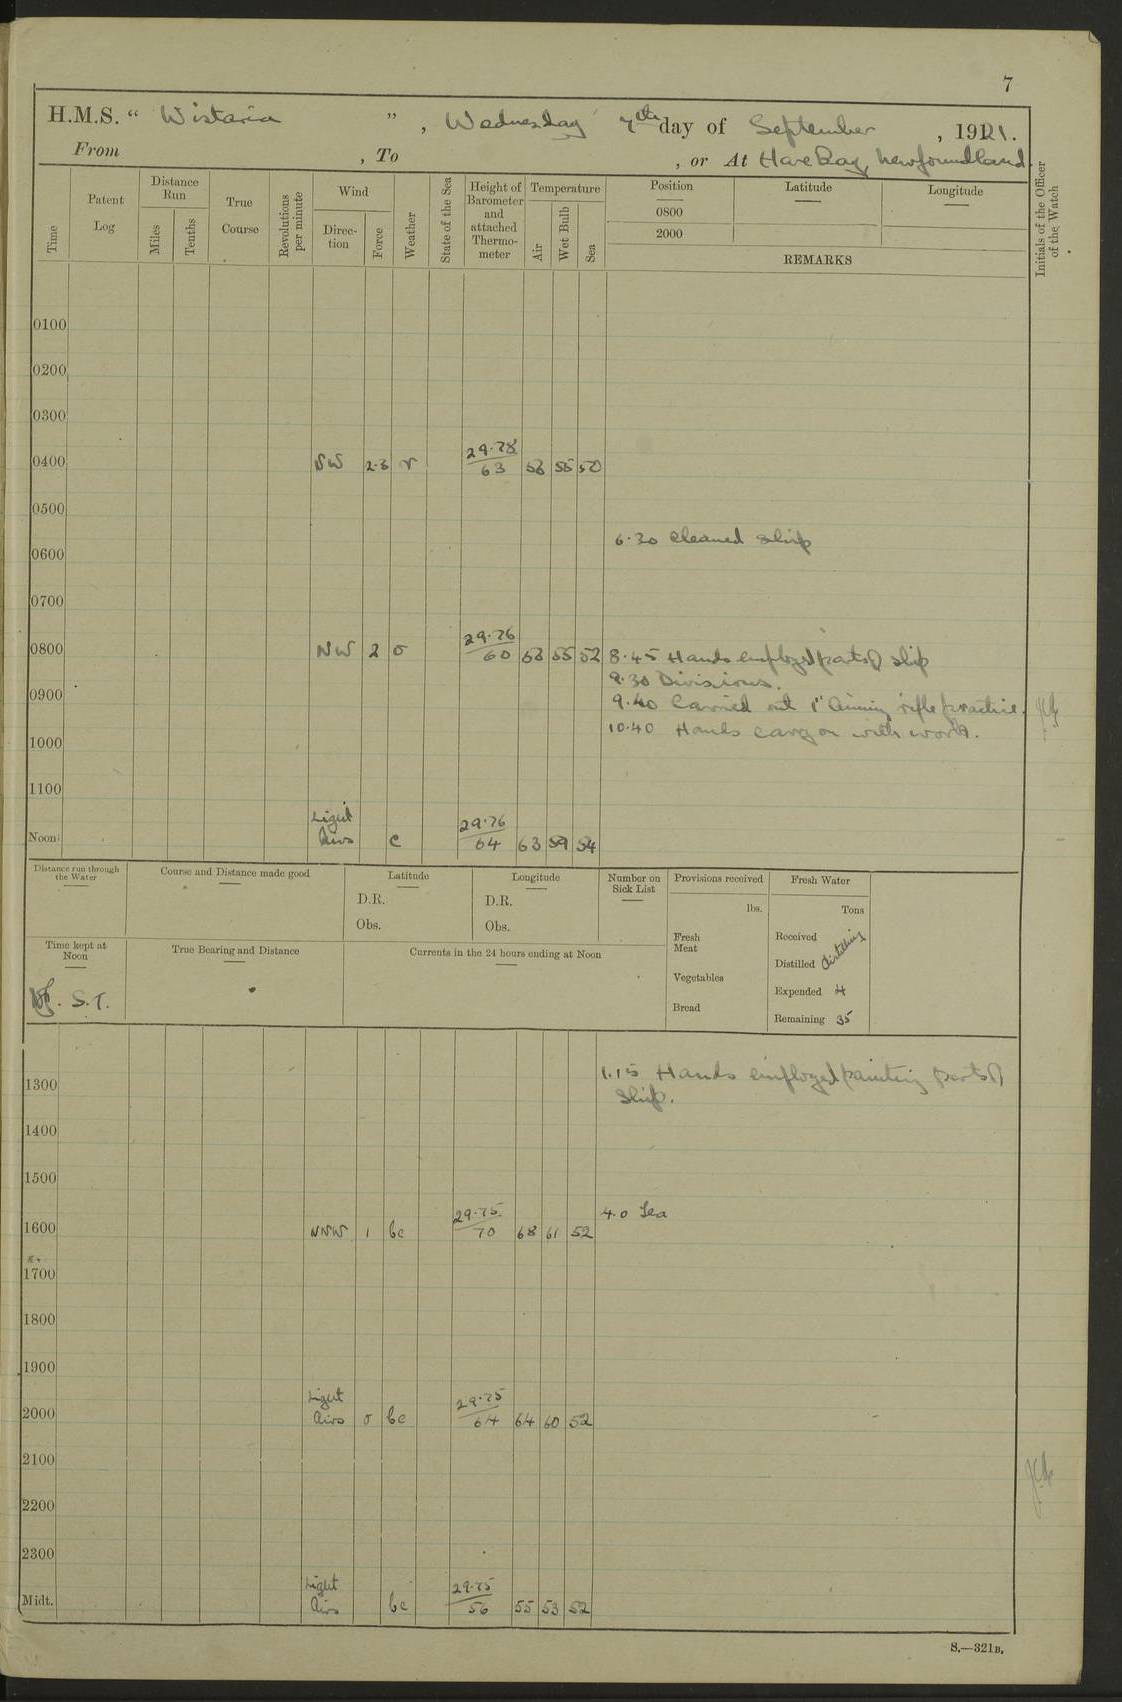 7
H.M.S. " Wistaria " , Wednesday 7th day of September , 1921.
From , To , or At Hare Bay, Newfoundland.
Time
Patent Log
Distance Run
Miles
Tenths
True Course
Revolutions per minute
Wind
Direction
Force
Weather
State of the Sea
Height of Barometer and attached Thermometer
Temperature
Air
Wet Bulb
Sea
Position
0800
2000
Latitude
Longitude
REMARKS
Initials of the Officer of the Watch
0100
0200
0300
29.78
0400 NW 2-3 63 55 50
0500
6.30 Cleaned ship
0600
0700
29.76
0800 NW 2 60 53 55 52 8.45 Hands employed parts of ship
9.30 Divisions.
0900 9.40 Carried out 1" Aiming rifle practice.
10.40 Hands carry on with work.
1000
1100
Light 29.76
Noon Airs c 64 63 59 54
Distance run through the Water
Course and Distance made good
Latitude
D.R.
Obs.
Longitude
D.R.
Obs.
Number on Sick List
Provisions received
lbs.
Fresh Meat
Vegetables
Bread
Fresh Water
Tons
Received
Distilled distilling
Expended 4
Remaining 35
Time kept at Noon
S.T.
True Bearing and Distance
Currents in the 24 hours ending at Noon
1.15 Hands employed painting parts of
1300 Ship.
1400
1500
29.75 4.0 Tea
1600 NNW 1 bc 70 68 61 52
1700
1800
1900
Light 29.75
2000 Airs 0 bc 64 64 60 52
2100
2200
2300
Light 29.75
Midt. Airs bc 56 55 53 52
S.—321B.